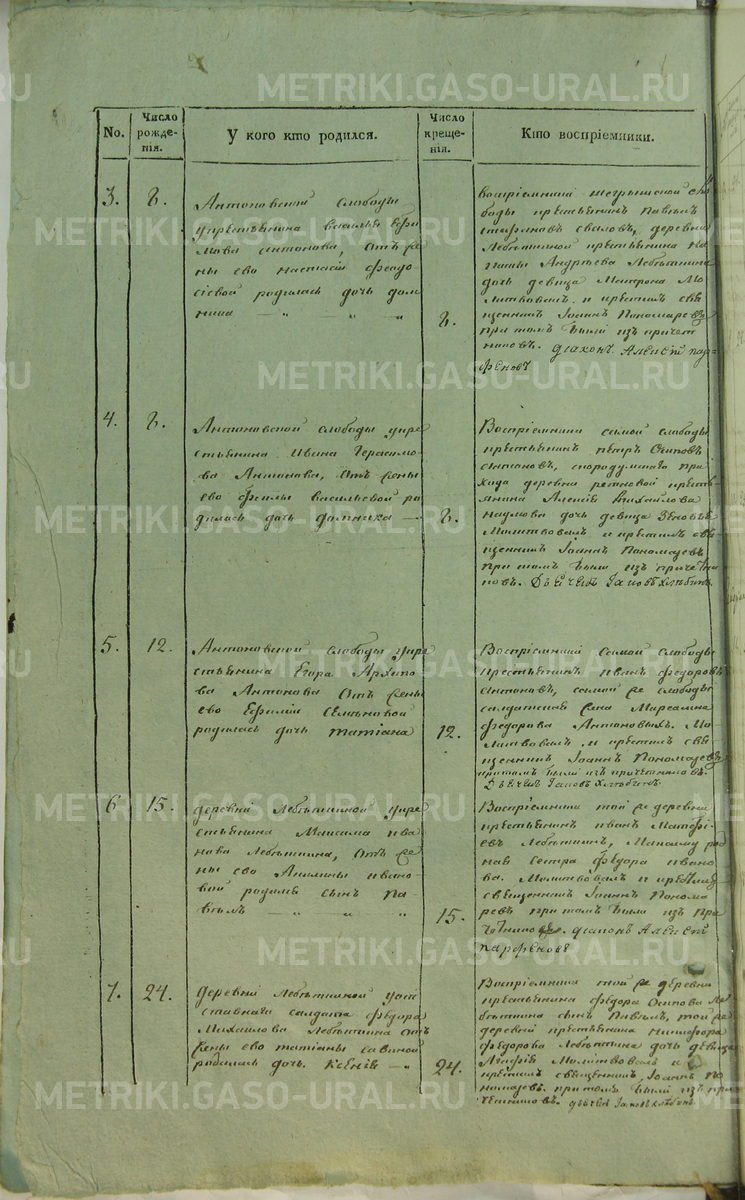 METRIKI.GASO-URAL.RU
No.
Число рожде-
нія.
У кого кто родился.
Число креще-
нія.
Кто воспріемники.
3.
8.
Антоновской слободы
у крестьянина Василья Ефи
мова Антонова, отъ же
ны ево Настасіи Федо
сіевой родилась дочь Дом
ника — „ — „ — „
8.
воспріемники
боды крестьянинъ Павелъ
деревни
Лебяткиной крестьянина
Андреева Лебяткина
дочь девица Матрона Мо
литвовалъ и крестилъ свя
щенникъ Іоаннъ Пономаревъ
при томъ были изъ причет
никовъ. діаконъ Алексій Пар
феновъ
4.
8.
Антоновской слободы у кре
стьянина Ивана Герасимо
ва Антонова, отъ жены
ево Васильевой ро
дилась дочь Домника —
8.
Воспріемники самой слободы
крестьянинъ Петръ Осиповъ
Антоновъ, при
хода деревни кресть
янина Алексія Михайлова
Наумова дочь девица
Молитвовалъ и крестилъ свя
щенникъ Іоаннъ Пономаревъ
при томъ были изъ причетни
ковъ. Дьячекъ Іаковъ Хлебинъ
5.
12.
Антоновской слободы у кре
стьянина Егора Архипо
ва Антонова отъ жены
ево Семеновой
родилась дочь Татіана
12.
Воспріемники самой слободы
крестьянинъ Иванъ Федоровъ
Антоновъ, самой же слободы
салдатская жена
Федорова Антоновыхъ. Мо
литвовалъ и крестилъ свя
щенникъ Іоаннъ Пономаревъ
при томъ были изъ причетниковъ.
Дьячекъ Іаковъ Хлебинъ.
6
15.
деревни Лебяткиной у кре
стьянина Максима Ива
нова Лебяткина, отъ же
ны ево Акилины Ивано
вой родился сынъ Па
велъ „ „ „
15.
Воспріемники той же деревни
крестьянинъ Иванъ Матфі
евъ Лебяткинъ, род
ная сестра Федора Ивано
ва. Молитвовалъ и крестилъ
священникъ Іоаннъ Понома
ревъ при томъ были изъ при
четниковъ. діаконъ Алексій
Парфеновъ
7.
24.
деревни Лебяткиной у от
ставнаго салдата Федора
Михайлова Лебяткина отъ
жены ево Татіаны Савиной
родилась дочь Ксенія — „
24.
Воспріемники той же деревни
крестьянина Федора Осипова Ле
бяткина сынъ Павелъ, той же
деревни крестьянина Никифора
Федорова Лебяткина дочь девица
Молитвовалъ и
крестилъ священникъ Іоаннъ По
номаревъ при томъ были изъ при
четниковъ. дьячекъ Іаковъ Хлебинъ